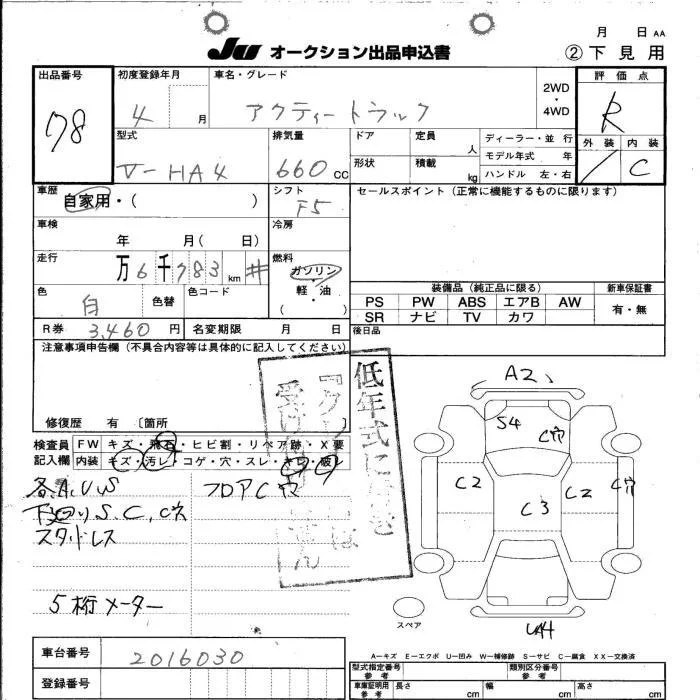 月 日 AA
JU オークション出品申込書 ② 下見用
出品番号 78
初度登録年月 4 月
車名・グレード アクティートラック
2WD・4WD
評価点 R
外装 / 内装 C
型式 V-HA4
排気量 660 CC
ドア 定員 人
ディーラー・並行
モデル年式 年
形状 積載 kg
ハンドル 左・右
車歴 自家用・( )
シフト F5
セールスポイント(正常に機能するものに限ります)
車検 年 月( 日)
冷房
走行 万 6 千 783 km #
燃料 ガソリン 軽・油 ( )
色 白 色替 色コード
装備品(純正品に限る) 新車保証書
PS PW ABS エアB AW
SR ナビ TV カワ
有・無
R券 3,460 円 名変期限 月 日
後日品
注意事項申告欄(不具合内容等は具体的に記入してください)
修復歴 有 [箇所 ]
低年式に
検査員記入欄
FW キズ・飛石・ヒビ割・リペア跡・X要
内装 キズ・汚レ・コゲ・穴・スレ・キレ・破レ
各A,U,S
フロアC穴
下回りS.C,C穴
スタッドレス
5桁メーター
A2
S4
C穴
C2
C3
C2
C穴
スペア
UA4
A-キズ E-エクボ U-凹み W-補修跡 S-サビ C-腐食 XX-交換済
車台番号 2016030
登録番号
型式指定番号 参考
類別区分番号 参考
車庫証明用 参考 長さ cm 幅 cm 高さ cm